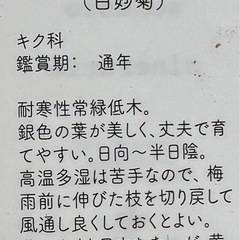 （白妙菊）
キク科
鑑賞期： 通年
耐寒性常緑低木。
銀色の葉が美しく、丈夫で育
てやすい。日向～半日陰。
高温多湿は苦手なので、梅
雨前に伸びた枝を切り戻して
風通し良くしておくとよい。